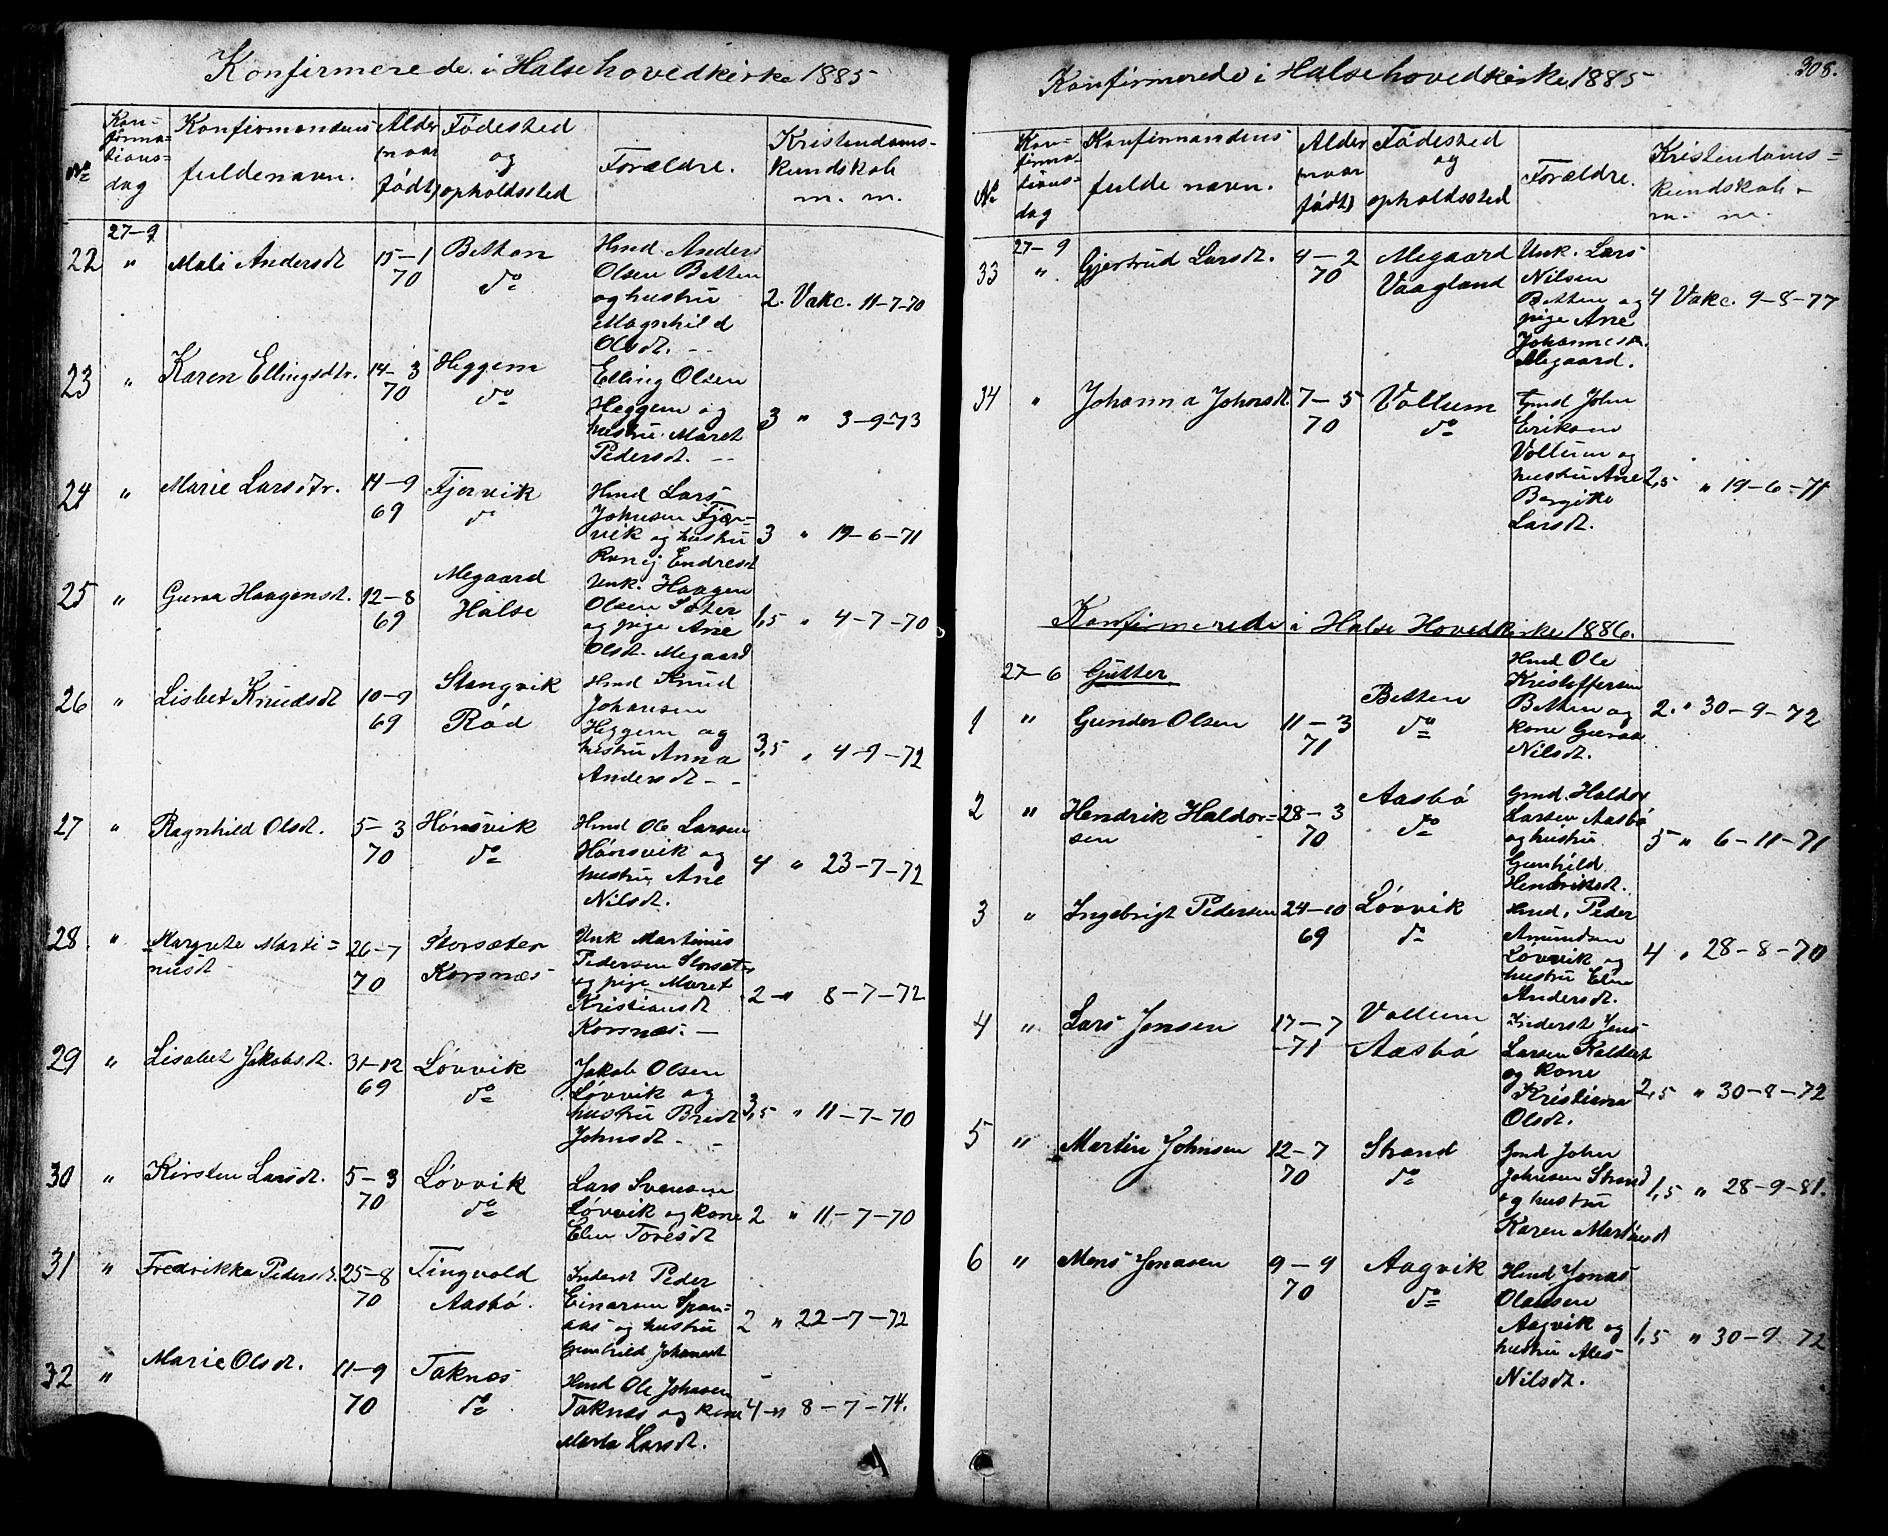 Konfirmerede i Halse hovedkirke 1885
No
Kon-
firma-
tions-
dag
Konfirmandens
fulde navn.
Alder
(naar
født)
Fødested
og
opholdssted
Forældre.
Kristendoms-
kundskab
m. m.
22
27-9
"
Mali Andersdt
15-1
70
Betten
do
Hmd. Anders
Olsen Betten
og hustru
Magnhild
Olsdt. -
2. Vakc. 11-7-70
23
"
Karen Ellingsdtr.
14-3
70
Heggem
do
Elling Olsen
Heggem og
hustru Maret
Pedersdt. -
3 " 3-9-73
24
"
Marie Larsdtr.
14-9
69
Fjervik
do
Hmd Lars
Johnsen Fjær-
vik og hustru
Ranig Endresdt
3 " 19-6-71
25
"
Guraa Haagensdt.
12-8
69
Megaard
Halse
Unk. Haagen
Olsen Sæter
og pige Ane
Olsdt. Megaard
1,5 " 4-7-70
26
"
Lisbet Knudsdt
10-9
69
Stangvik
Rød
Hmd Knud
Johansen
Heggem og
hustru Anna
Andersdt - -
3,5 " 4-9-72
27
"
Ragnhild Olsdt.
5-3
70
Hønsvik
do
Hmd Ole Larsen
Hønsvik og
hustru Ane
Nilsdt.
4 " 23-7-72
28.
"
Margrete Marti=
nusdt
26-7
70
Storsæter
Korsnæs
Unk Martinus
Pedersen Storsæt-
og pige Maret
Kristiansdt
Korsnæs. -
2 " 8-7-72
29
"
Lisabet Jakobsdt.
31-12
69
Løvvik
do
Jakob Olsen
Løvvik og
hustru Bredt
Johnsdt - -
3,5 " 11-7-70
30
"
Kirsten Larsdt.
5-3
70
Løvvik
do
Lars Svensen
Løvvik og kone
Elen Toresdt
2 " 11-7-70
31
"
Fredrikke Pedersdt.
25-8
70
Tingvold
Aasbø.
Inderst Peder
Einarsen Span-
aas og hustru
Gunhild Johansdt
2 " 22-7-72
32
"
Marie Olsdt.
11-9
70
Taknæs
do
Hmd Ole Johnsen
Taknæs og kone
Marta Larsdt.
4 " 8-7-74.
308.
Konfirmerede i Halse hovedkirke 1885
No
Kon-
firma-
tions-
dag
Konfirmandens
fulde navn.
Alder
(naar
født)
Fødested
og
opholdssted
Forældre.
Kristendoms=
kundskab -
m. m.
33
27-9
"
Gjertrud Larsdt.
4-2
70
Megaard
Vaagland
Unk. Lars
Nilsen
Betten og
pige Ane
Johannesdt.
Megaard.
4 Vakc. 9-8-77
34
"
Johanna Johnsdt.
7-5
70
Valtum
do
Gmd John
Eriksen
Valtum og
hustru Ane
Bergitte
Larsdt.
2,5 " 19-6-71
Konfirmerede i Halse Hovedkirke 1886.
27-6
Gutter.
1
"
Gunder Olsen
11-3
71
Betten
do
Hmd Ole
Kristoffersen
Betten og
kone Guraa
Nilsdt.
2. " 30-9-72
2
"
Hendrik Haldor=
sen
28-3
70
Aasbø
do
Gmd. Haldor
Larsen Aasbø
og hustru
Gunhild
Hendriksdt.
5 " 6-11-71
3
"
Ingebrigt Pedersen
24-10
69
Løvvik
do
Hmd. Peder
Amundsen
Løvvik og
hustru Elen
Andersdt.
4 " 28-8-70
4
"
Lars Jensen
17-7
-71
Valtum
Aasbø
Inderst Jens
Larsen
og kone
Kristiana
Olsdt.
2,5 " 30-8-72
5
"
Martin Johnsen
12-7
70
Strand
do
Gmd John
Johnsen Strand
og hustru
Karen Martinsdt
1,5 " 28-9-81.
6
"
Mons Jonasen
9-9
70
Aagvik
do
Hmd Jonas
Olausen
Aagvik og
hustru Ales
Nilsdt.
1,5 " 30-9 72